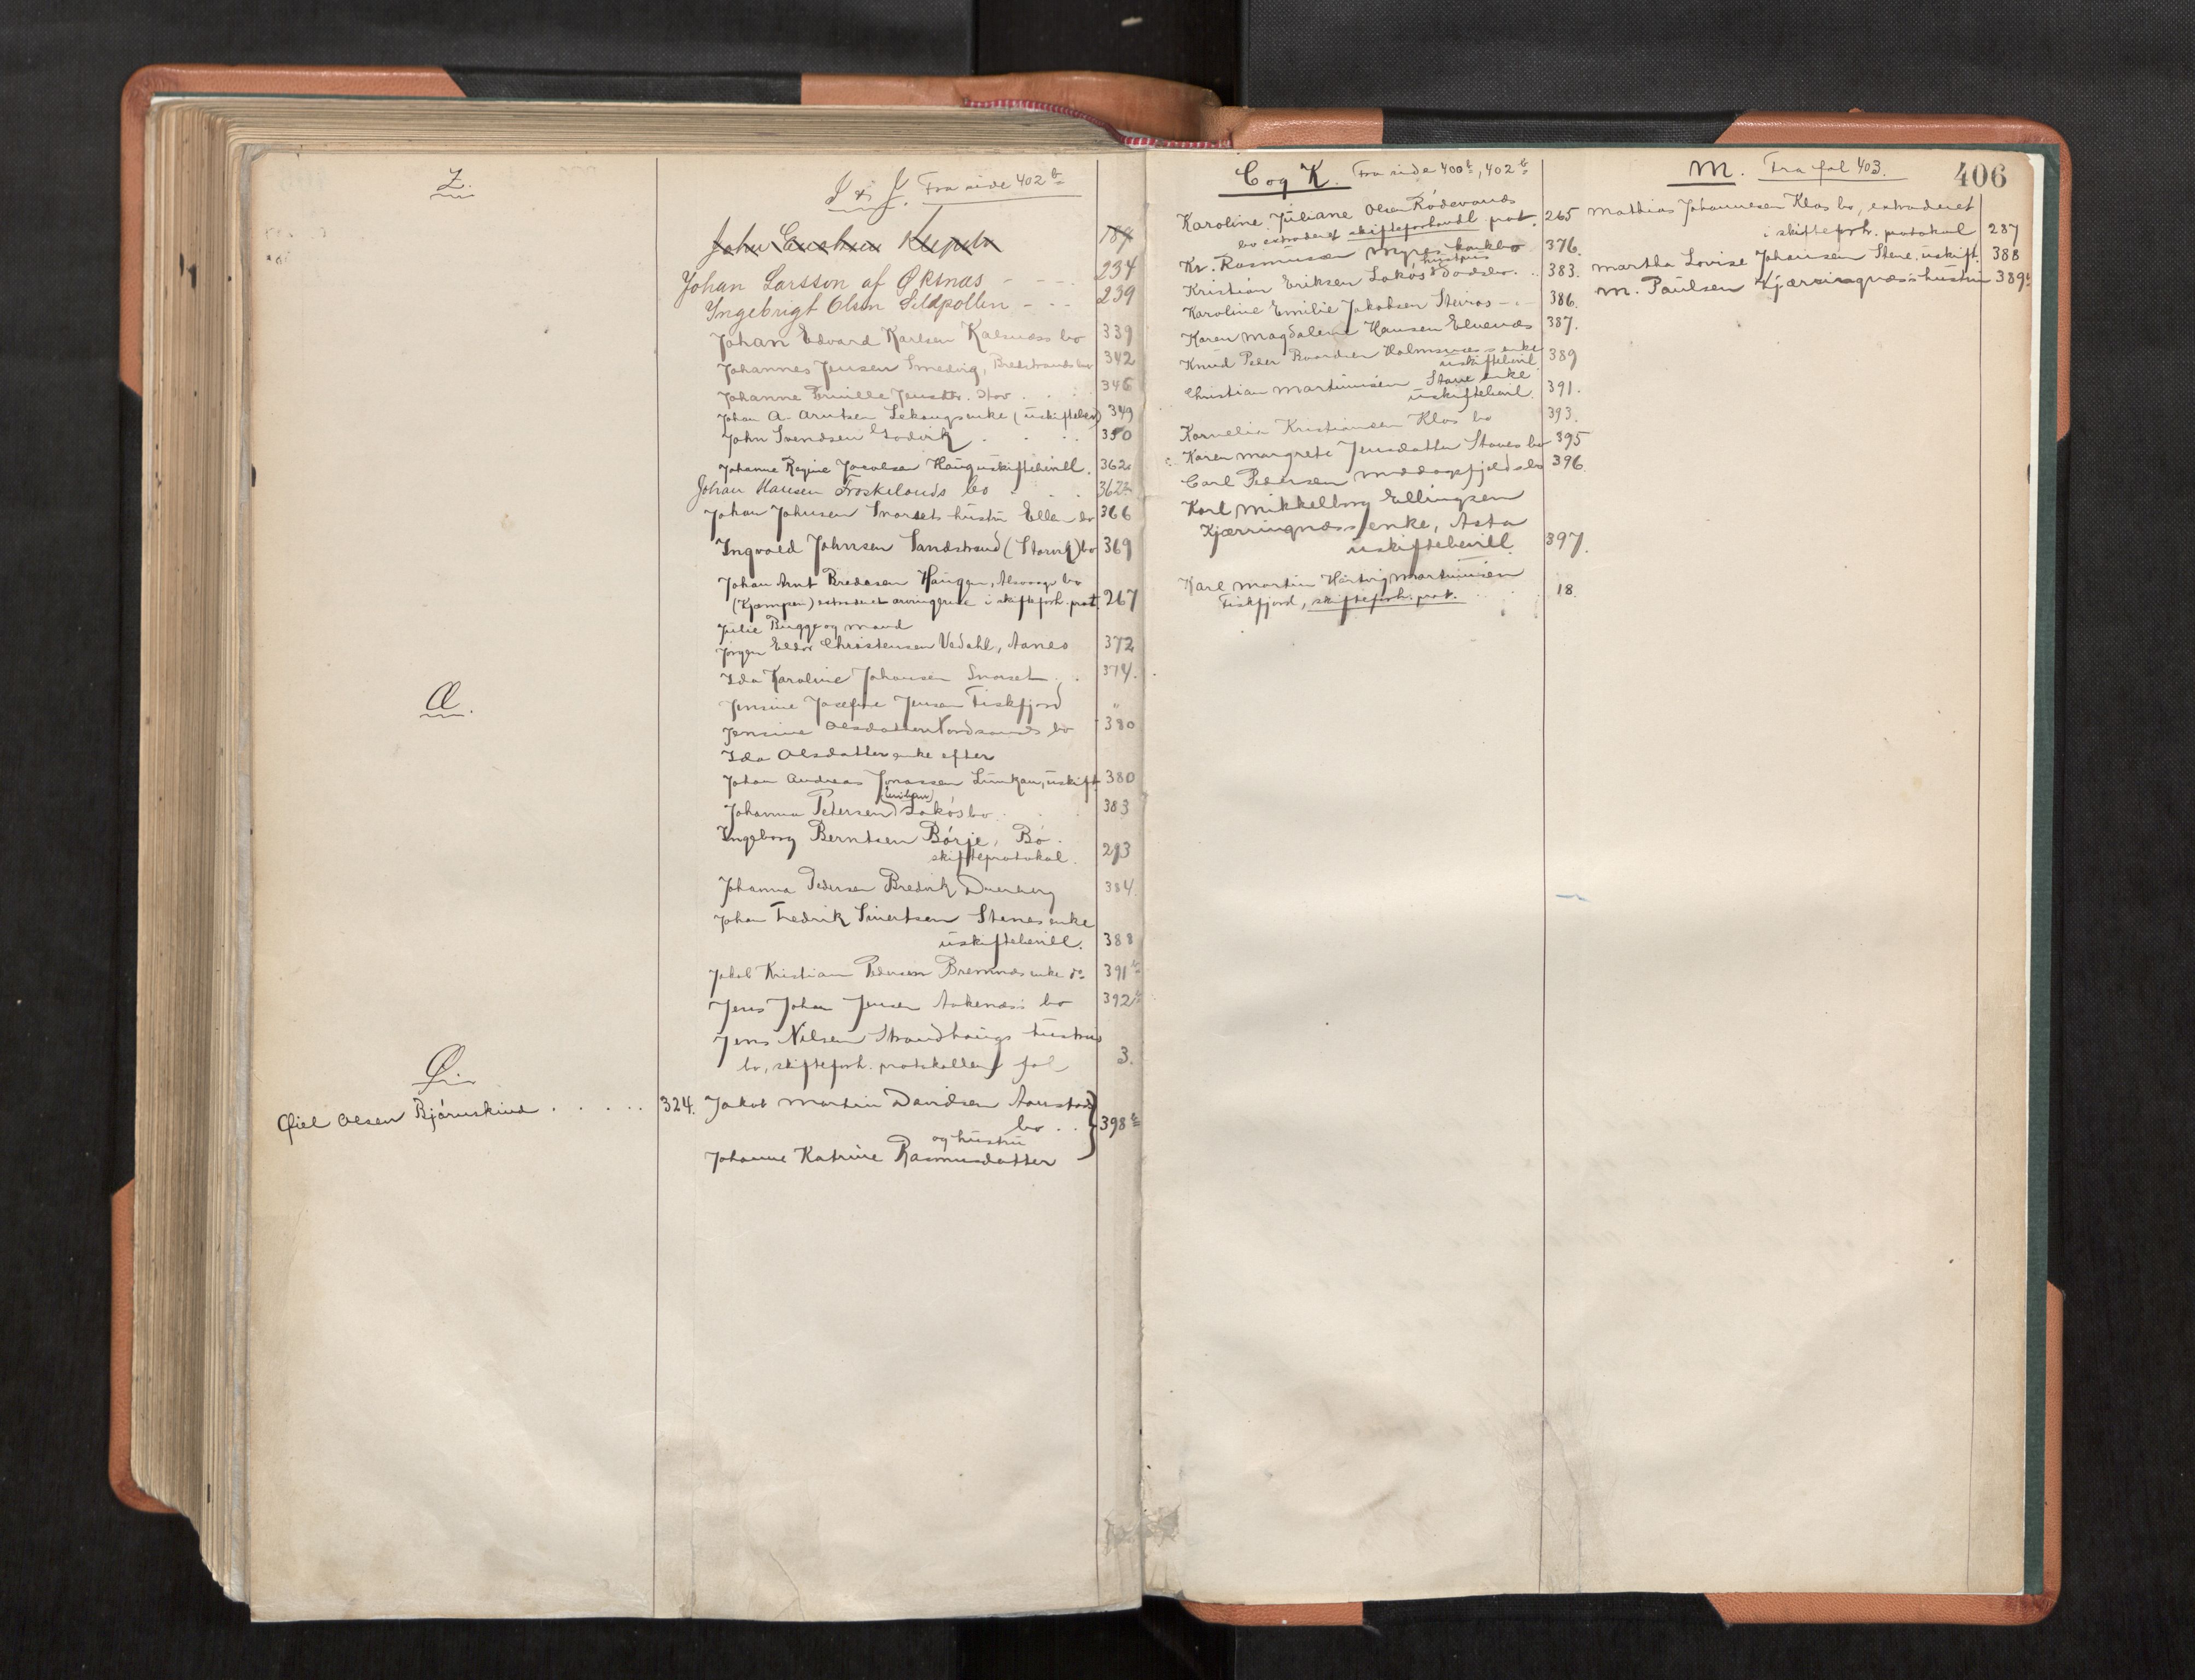 Z.
Æ.
Ø.
Øiel Olsen Bjørnskind . . . . . 324.
I & J. Fra side 402 b
John 189
Johan Larsson af Øksnæs - - - 234
Ingebrigt Olsen Sildpollen - - - 239
Johan Edvard Karlsen Kalsnæss bo 339
Johannes Jensen Smedvig, Bredstrands bo 342
Johanne Pernille Jensdtr. Stov . . . 346
Johan A. Arntsen Lekangs enke (uskiftebev) 349
John Svendsen Godvik . . . . 350
Johanne Regine Jacobsen Haug uskiftebevill. 362
Johan Hansen Froskelands bo . . . 362 b
Johan Johnsen Snorsets hustru Ellen bo 366
Ingvald Johnsen Sandstrand (Storvik) bo 369
Johan Arnt Bredesen Haugen, Alsvaags bo
(Kjæmpen) extraderet arvingerne i skifteforh. prot. 267
Julie Bugge og mand
Jørgen Eldor Christensen Vedahl, Aanes 372
Ida Karoline Johansen Snorset . . 374.
Jensine Josefine Jensen Fiskfjord "
Jensine Olsdatter Nordsands bo 380
Ida Olsdatter enke efter
Johan Andreas Jonassen Lunkan, uskift. 380
Johanna Petersen Løkøs bo . . 383
Ingeborg Berntsen Børje, Bø.
skifteprotokol. 293
Johanna Pedersen Bredvik Dverberg 384.
Johan Fredrik Sivertsen Stenes enke
uskiftebevill. 388
Jakob Kristian Pedersen Bremnes enke do 391 b
Jens Johan Jensen Askenæs's bo 392 b
Jens Nilsen Strandhaugs hustrus
bo, skifteforh. protokollen fol 3.
Jakob Martin Davidsen Aanstad
bo . . 398 b
og hustru
Johanne Katrine Rasmusdatter
C og K. Fra side 400 b, 402 b
406
Karoline Juliane Olsen Rødevands
bo extraderet skifteforhandl. prot. 265
Kr. Rasmussen Myres konkbo 376.
hustrus
Kristian Eriksen Løkøs dødsbo. .. 383.
Karoline Emilie Jakobsen Steiros - . - 386.
Karen Magdalene Hansen Elvenæs 387.
Knud Peder Baardsen Holmsnæs's enke
uskiftebevil. 389
Christian Martinusen Stave enke
uskiftebevil. 391.
Kornelia Kristiansen Klos bo 393.
Karen Margrete Jensdatter Staves bo 395
Carl Pedersen Middagsfjelds bo 396.
Karl Mikkelborg Ellingsen
Kjærringnæss enke, Asta
uskiftebevill. 397.
Karl Martin Hartvig Martinusen
Fiskfjord, skifteforh. prot. . . . 18.
M. Fra fol 403.
Mathias Johannesen Klos bo, extraderet
i skifteforh. protokol 287
Martha Lovise Johansen Stene, uskift. 388
M. Paulsen Kjærringnæs's hustru 389 b